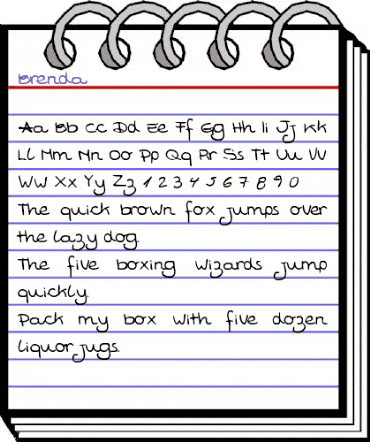 Brenda
Aa Bb Cc Dd Ee Ff Gg Hh Ii Jj Kk
Ll Mm Nn Oo Pp Qq Rr Ss Tt Uu Vv
Ww Xx Yy Zz 1 2 3 4 5 6 7 8 9 0
The quick brown fox jumps over
the lazy dog.
The five boxing wizards jump
quickly.
Pack my box with five dozen
liquor jugs.